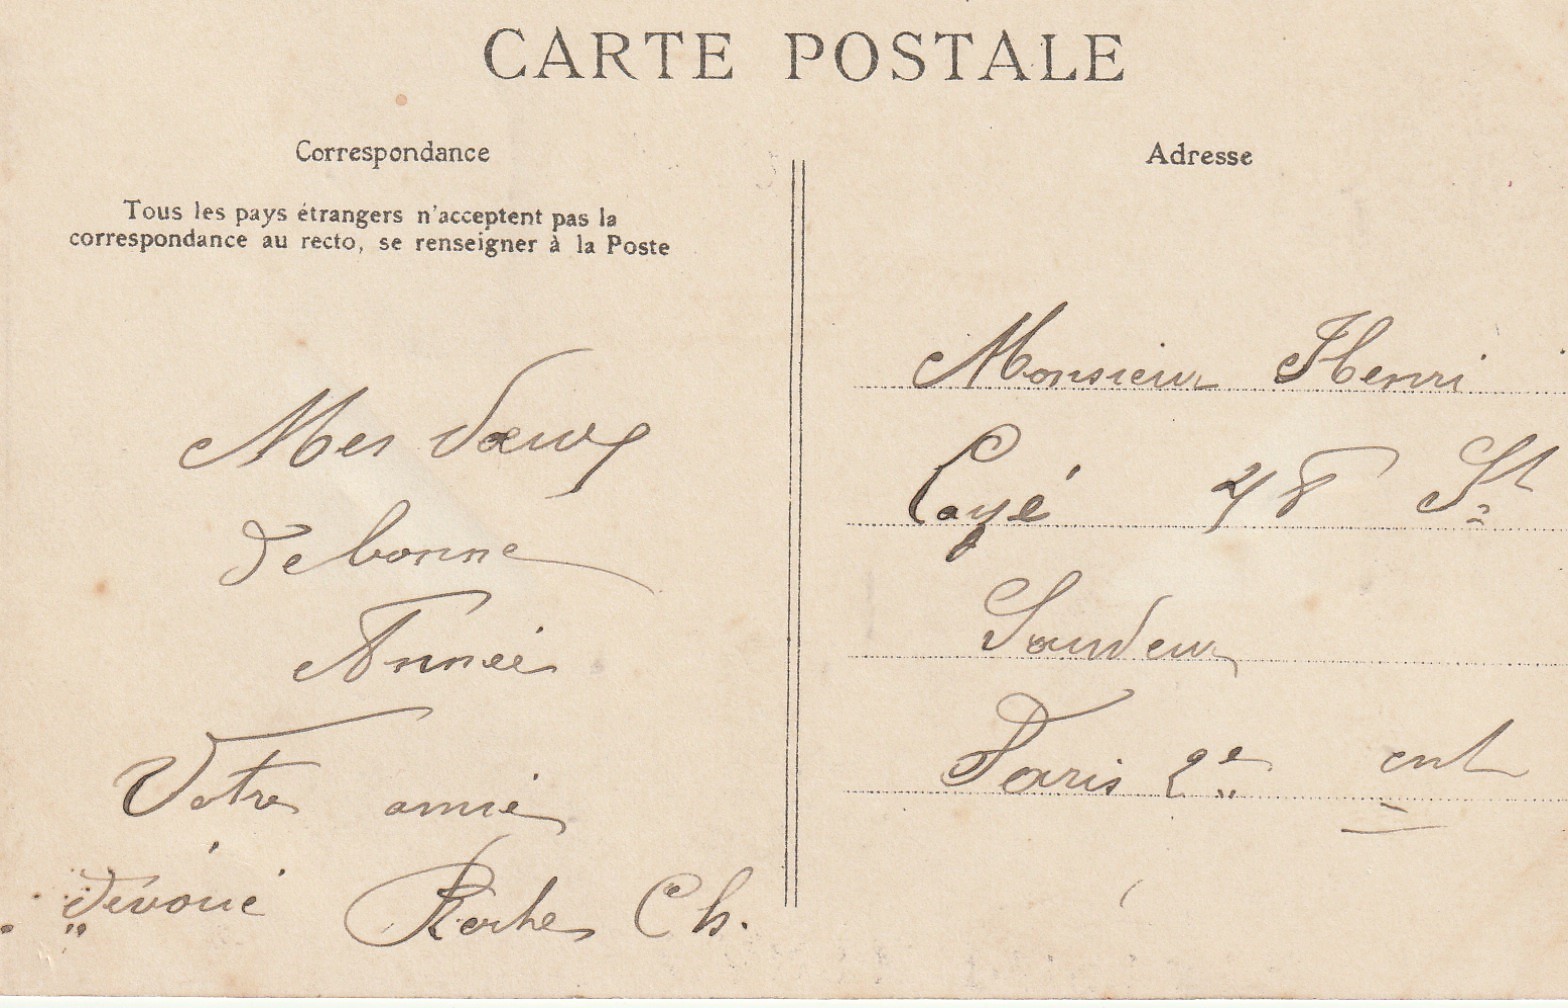 CARTE POSTALE
Correspondance
Tous les pays étrangers n'acceptent pas la
correspondance au recto, se renseigner à la Poste
Mes Vœux
de bonne
Année
Votre amie
dévoué Roche Ch.
Adresse
Monsieur Henri
Cayé St
Paris 2e